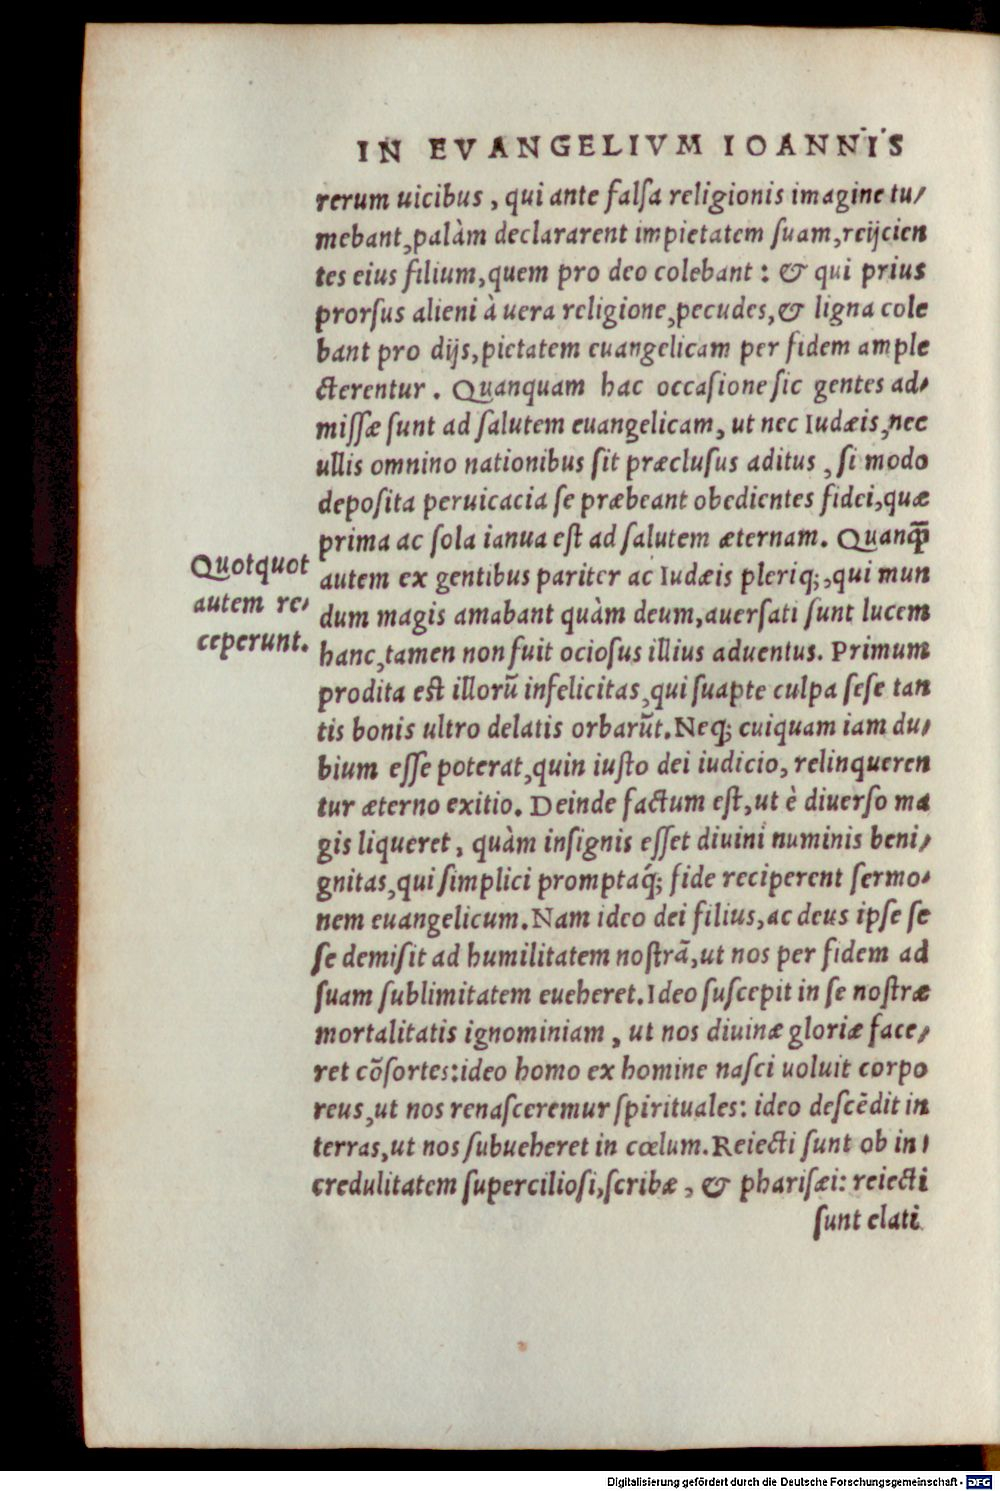 IN EVANGELIVM IOANNIS
rerum uicibus, qui ante falſa religionis imagine tu/
mebant, palàm declararent impietatem ſuam, reijcien
tes eius filium, quem pro deo colebant: & qui prius
prorſus alieni à uera religione, pecudes, & ligna cole
bant pro dijs, pietatem euangelicam per fidem ample
cterentur. Quanquam hac occaſione ſic gentes ad/
miſſæ ſunt ad ſalutem euangelicam, ut nec Iudæis, nec
ullis omnino nationibus ſit præcluſus aditus, ſi modo
depoſita peruicacia ſe præbeant obedientes fidei, quæ
prima ac ſola ianua eſt ad ſalutem æternam. Quanq̄
Quotquot
autem re/
ceperunt.
autem ex gentibus pariter ac Iudæis pleriq;, qui mun
dum magis amabant quàm deum, auerſati ſunt lucem
hanc, tamen non fuit ocioſus illius aduentus. Primum
prodita eſt illorū infelicitas, qui ſuapte culpa ſeſe tan
tis bonis ultro delatis orbarūt. Neq; cuiquam iam du/
bium eſſe poterat, quin iuſto dei iudicio, relinqueren
tur æterno exitio. Deinde factum eſt, ut è diuerſo ma
gis liqueret, quàm inſignis eſſet diuini numinis beni/
gnitas, qui ſimplici promptaq́; fide reciperent ſermo/
nem euangelicum. Nam ideo dei filius, ac deus ipſe ſe
ſe demiſit ad humilitatem noſtrā, ut nos per fidem ad
ſuam ſublimitatem eueheret. Ideo ſuſcepit in ſe noſtræ
mortalitatis ignominiam, ut nos diuinæ gloriæ face/
ret cōſortes: ideo homo ex homine naſci uoluit corpo
reus, ut nos renaſceremur ſpirituales: ideo deſcēdit in
terras, ut nos ſubueheret in cœlum. Reiecti ſunt ob in/
credulitatem ſupercilioſi, ſcribæ, & phariſæi: reiecti
ſunt elati
Digitalisierung gefördert durch die Deutsche Forschungsgemeinschaft - DFG